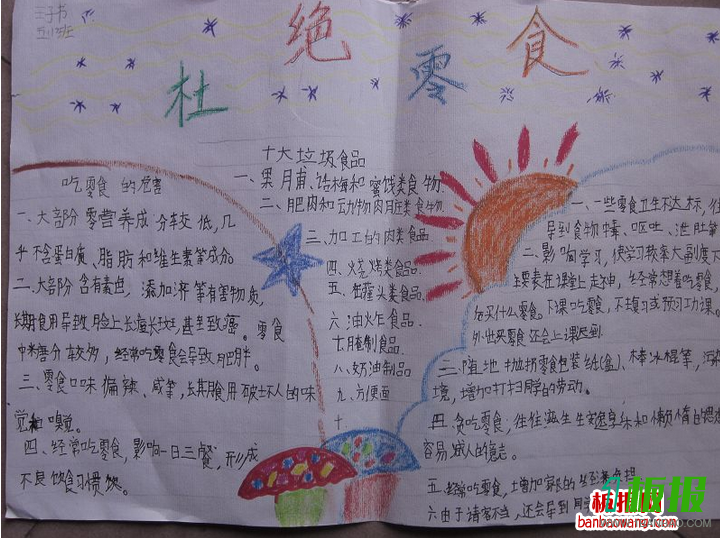 五(1)班
杜绝零食
吃零食的危害
一、大部分零营养成分较低,几
乎不含蛋白质、脂肪和维生素等成分。
二、大部分含有素色,添加济等有害物质,
长期食用导致脸上长痘长斑,甚至致癌。零食
中糖分较多,经常吃零食会导致肥胖。
三、零食口味偏辣、咸等,长期食用破坏人的味
觉和嗅觉。
四、经常吃零食,影响一日三餐,形成
不良饮食习惯。
十大垃圾食品
一、果脯、话梅和蜜饯类食物
二、肥肉和动物内脏类食物
三、加工的肉类食品
四、火烧烤类食品
五、罐头类食品
六、油炸食品
七、腌制食品
八、奶油制品
九、方便面
十、
一、一些零食卫生不达标,往
导到食物中毒、呕吐、泄肚
二、影响学习,使学习效率大副度下
主要表在课堂上走神,经常想着吃零食,
买什么零食。下课吃零食,不复习或预习功课。
外出买零食还会上课迟到
三、随地抛扔零食包装纸(盒)、棒冰棍等,污染
境,增加打扫同学的劳动。
四、贪吃零食,往往滋生享乐和懒惰的思
容易
五、经常吃零食,增加家长的经济负担
六、由于请客不当,还会导到同学
板报网
banbaowang.com